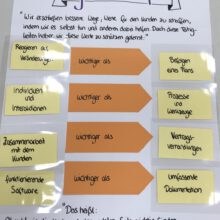 "Wir erschließen bessere Wege, Werte für den Kunden zu schaffen,
indem wir es selbst tun und anderen dabei helfen. Durch diese Tätig-
keiten haben wir diese Werte zu schätzen gelernt."
Reagieren auf
Veränderung
wichtiger
als
Befolgen
eines Plans
Individuen
und
Interaktionen
wichtiger
als
Prozesse und
Werkzeuge
Zusammenarbeit
mit dem
Kunden
wichtiger
als
Vertrags-
verhandlungen
funktionierende
Software
wichtiger
als
Umfassende
Dokumentation
"Das heißt: